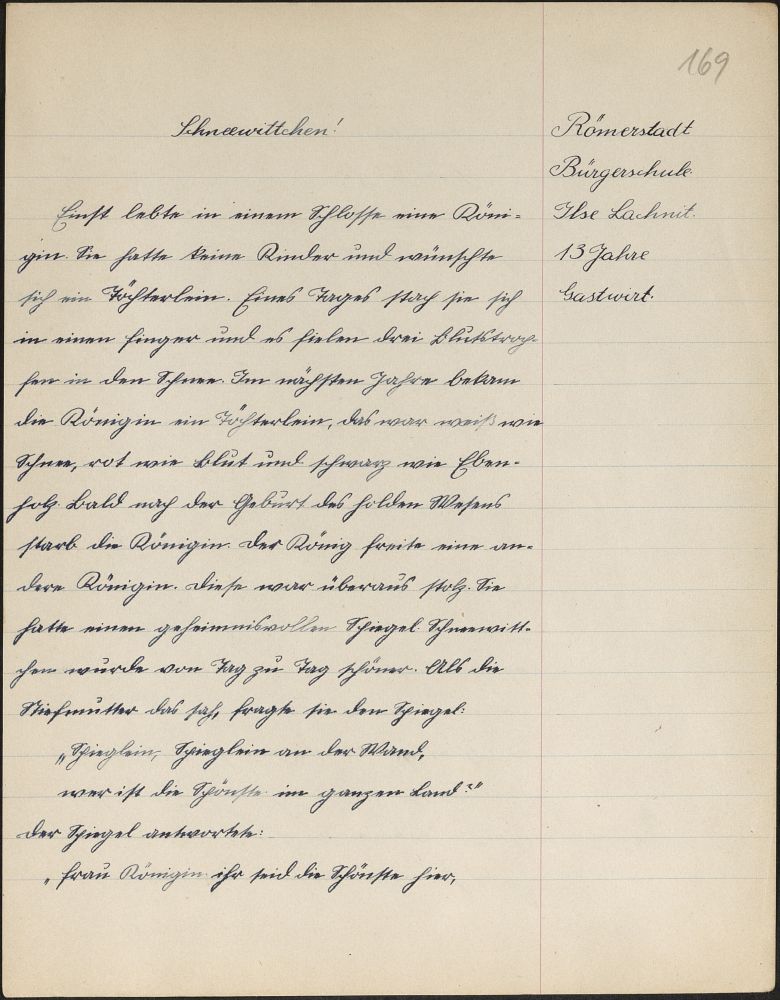 169
Schneewittchen!
Einst lebte in einem Schlosse eine Köni-
gin. Sie hatte keine Kinder und wünschte
sich ein Töchterlein. Eines Tages stach sie sich
in einen Finger und es fielen drei Blutstrop-
fen in den Schnee. Im nächsten Jahre bekam
die Königin ein Töchterlein, das war weiß wie
Schnee, rot wie Blut und schwarz wie Eben-
holz. Bald nach der Geburt des holden Wesens
starb die Königin. Der König freite eine an-
dere Königin. Diese war überaus stolz. Sie
hatte einen geheimnisvollen Spiegel. Schneewitt-
chen wurde von Tag zu Tag schöner. Als die
Stiefmutter das sah, fragte sie den Spiegel:
„Spieglein, Spieglein an der Wand,
wer ist die Schönste im ganzen Land?"
Der Spiegel antwortete:
„Frau Königin ihr seid die Schönste hier,
Römerstadt
Bürgerschule
Ilse Lachnit.
13 Jahre
Gastwirt.